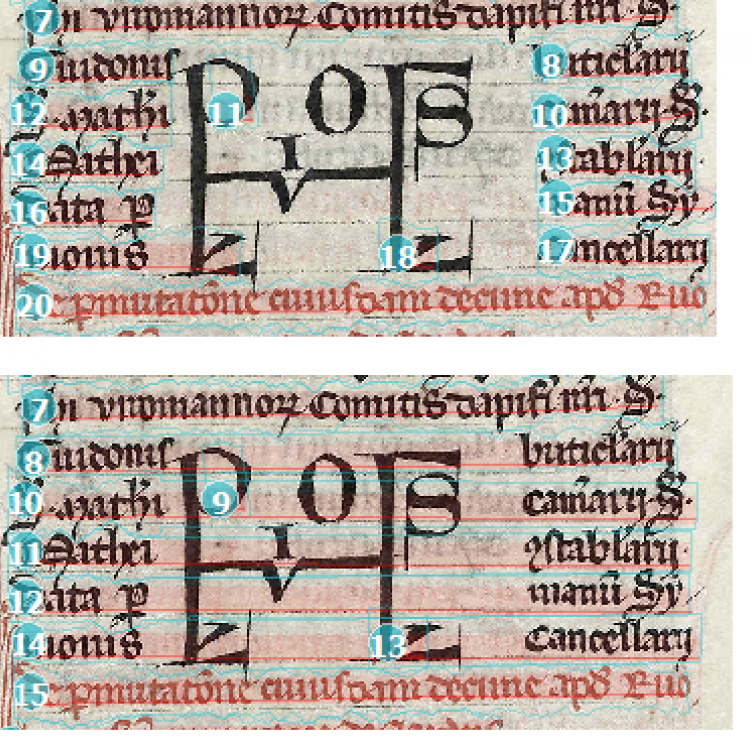 7 n viromannoꝝ Comitis dapifi nri S.
9 uidonis 8 uticlarij
12 mathi 11 O S 10 marij S.
14 Mathei I V 13 stablarij
16 ata ꝑ 15 anū Sy
19 monis 18 17 ncellarij
20 e pmutatōne cuiusdam decime apd Ruo
7 n viromannoꝝ Comitis dapifi nri S.
8 uidonis buticlarij
10 mathi 9 O S camarij S.
11 Mathei I V ꝯstablarij
12 ata ꝑ manū Sy
14 monis 13 Cancellarij
15 e pmutatōne cuiusdam decime apd Ruo